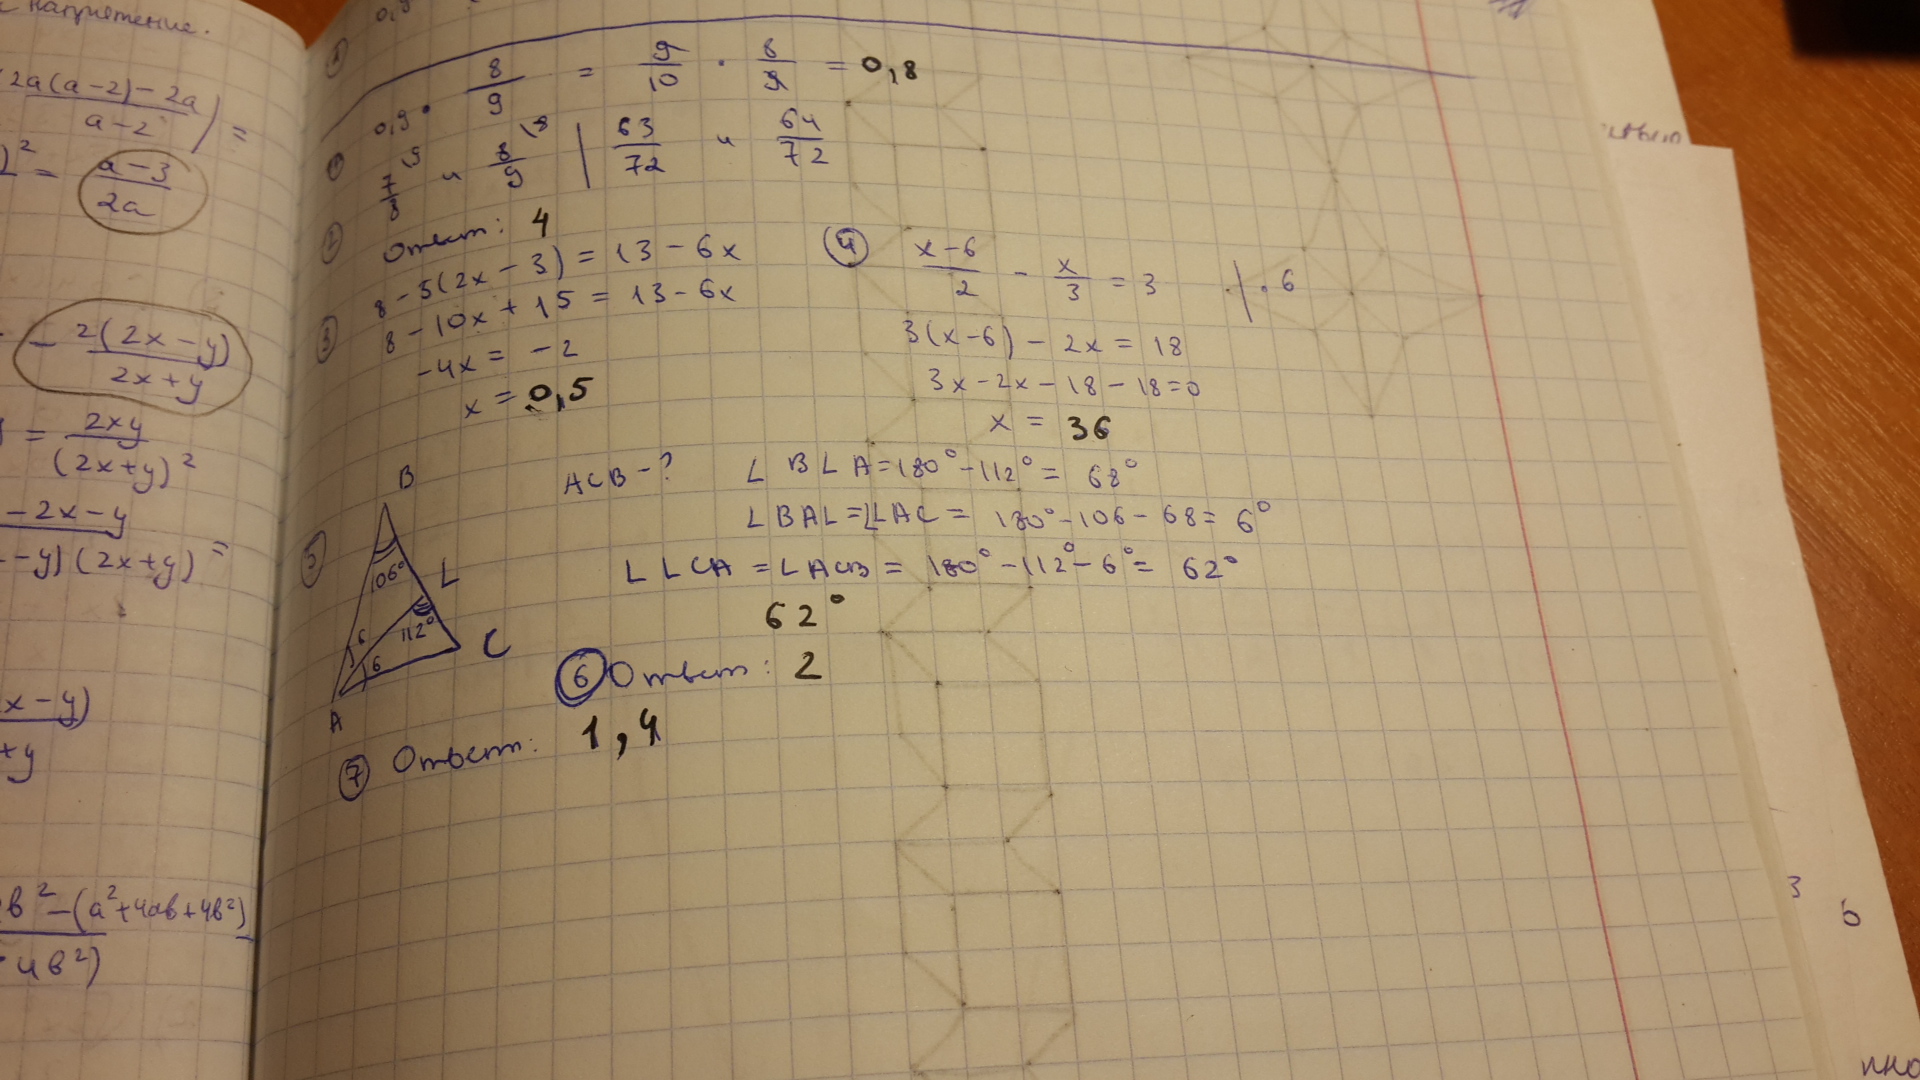 напряжение.
2a(a-2)-2a
a-2
) =
)² =
a-3
2a
- 2(2x-y)
2x+y
= 2xy
(2x+y)²
-2x-y
-y)(2x+y) =
x-y)
+y
в²-(a²+4aв+4в²)
4в²)
0,9 · 8/9 = 9/10 · 8/9 = 0,8
7/8 \9 и 8/9 \8 | 63/72 и 64/72
② Ответ: 4
③ 8-5(2x-3) = 13-6x
8-10x+15 = 13-6x
-4x = -2
x = 0,5
④ x-6/2 - x/3 = 3 | · 6
3(x-6) - 2x = 18
3x-2x-18-18=0
x = 36
⑤ B
106°
L
6
6
112°
C
A
ACB-?
∠ BLA=180°-112°= 68°
∠BAL=∠LAC = 180°-106-68= 6°
∠ LCA = ∠ACB = 180°-112°-6°= 62°
62°
⑥ Ответ: 2
⑦ Ответ: 1,4
3